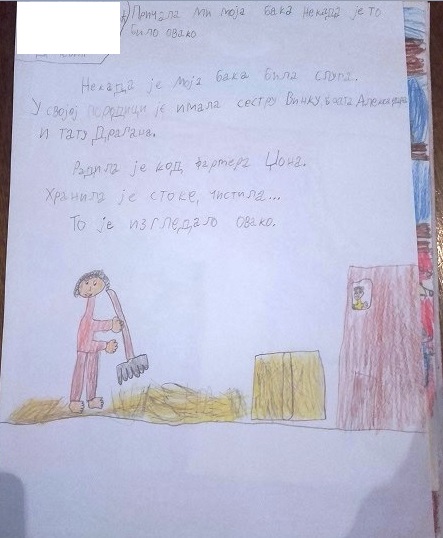 Причала ми моја бака некада је то
било овако
Некатда је моја бака била слуга.
У својој породици је имала сестру Винку брата Александра
и тату Драгана.
Радила је код фармера Џона.
Хранила је стоке, чистила...
То је изгледало овако.